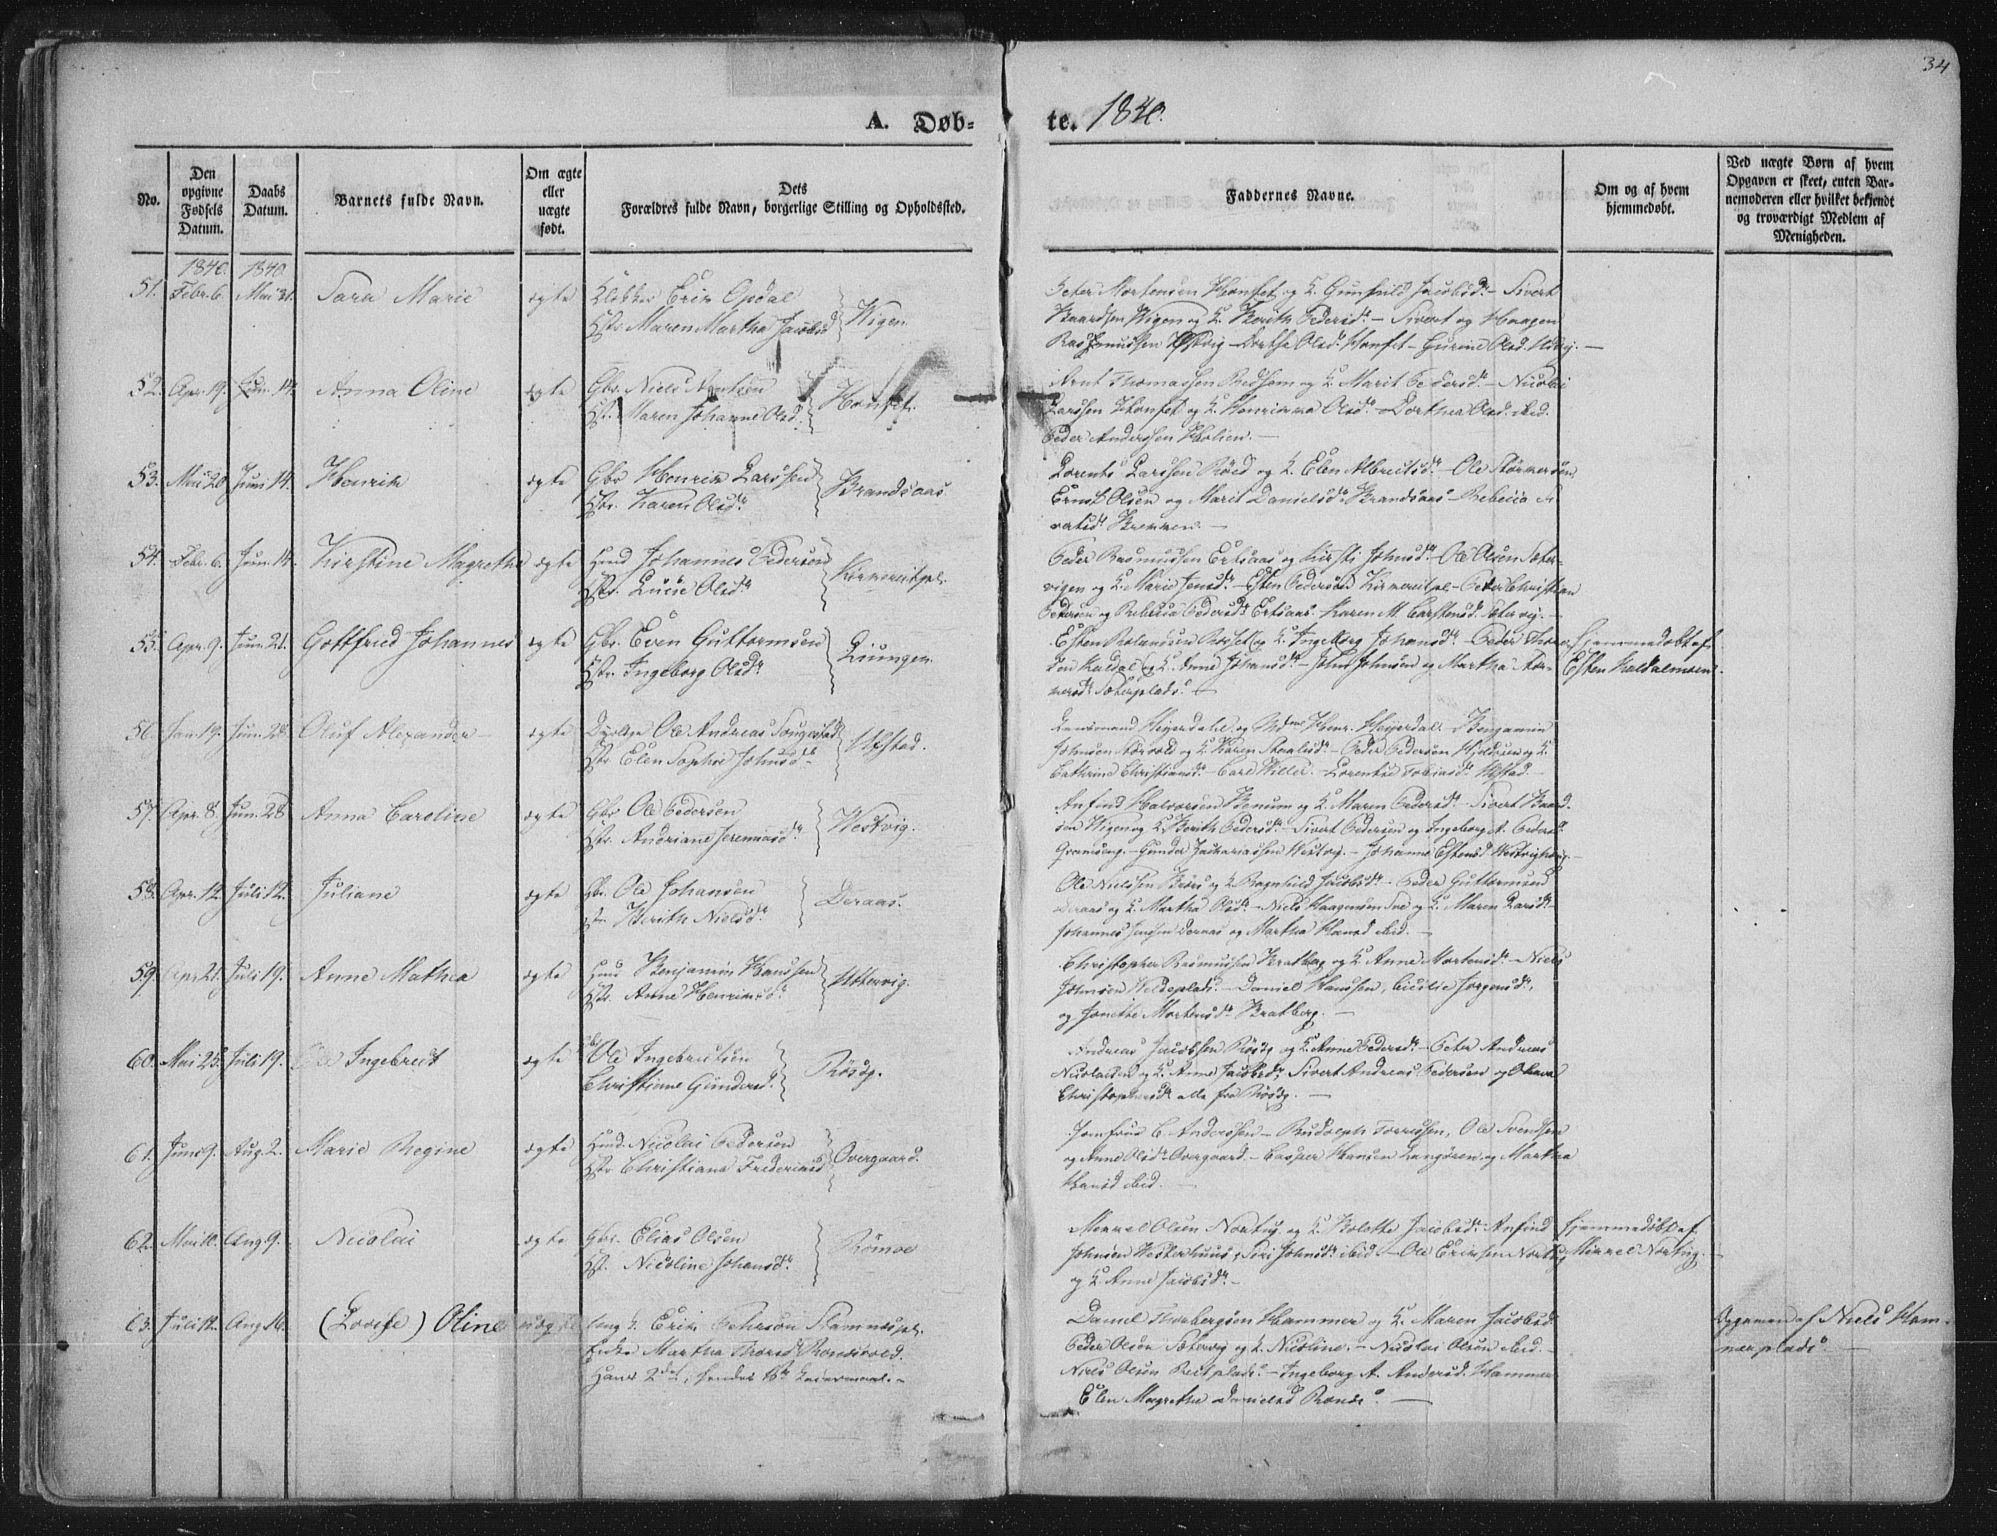 34
A. Døb-
te. 1840.
No.
Den opgivne Fødsels Datum.
Daabs Datum.
Barnets fulde Navn.
Om ægte eller uægte født.
Dets
Forældres fulde Navn, borgerlige Stilling og Opholdssted.
Faddernes Navne.
Om og af hvem hjemmedøbt.
Ved uægte Børn af hvem
Opgaven er skeet, enten Bar-
nemoderen eller hvilket bekjendt
og troværdigt Medlem af
Menigheden.
1840. 1840.
51. Febr. 6. Mai 31. Sara Marie ægte Klokker Erik Opdal
Hstr. Maren Martha Jacobsd Wigen
Peter Mortensen Homfet og K. Gunhild Jacobsdr. - Sivert
Baardsen Wigen og K. Berith Pedersdr. - Sivert og Haagen
Rasmussen Westvig - Dorthe Olsd. Homfet - Gurine Olsd.
52. Apr. 19. Jun. 14. Anna Oline ægte Gbr. Niels Arntsen
Hst. Maren Johanne Olsd. Homfet.
Arnt Thomassen Redsem og K. Marit Pedersdr. - Nicolai
Larssen Homfet og K. Henrikka Olsdr. - Dorthea Olsd. ibid.
Peder Anderssen Holien. -
53. Mai 20. Juni 14. Henrik ægte Gbr. Henrik Larssen
Hstr. Karen Olsdr. Brandsaas
Lorents Larssen Röed og K. Elen Albreitsdr. - Ole Stormersen,
Ernst Olsen og Marit Danielsdr. Brandsaas - Rebecca Si-
vertsdr. Brekken. -
54. Febr. 6. Jun. 14. Kirstine Magrethe ægte Huusmd. Johannes Pedersen
Hstr. Lucie Olsdr.
Peder Rasmussen Ertsaas og Kirsti Johnsdr. - Ole Olsen Seter-
vigen og K. Marie Jensdr. - Esten Pedersen - Peter Christian
Pedersen og Rebecca Pedersdr. Ertsaas. Karen M. Carstensd. Setervig. -
55. Apr. 9. Jun. 21. Gottfried Johannes ægte Gbr. Even Guttormsen
Hstr. Ingeborg Olsdr. Liungen.
Esten Rolandsen Rosset og K. Ingeborg Johansdr. - Peder
Kaldal og K. Anne Johansdr. - John Johnsen og Martha Tor-
nersdr. Seterplads. -
Hjemmedøbt af
Esten Kaldalmoen.
56. Jan. 19. Jun. 28. Oluf Alexander - ægte Ole Andreas Songestad
Hstr. Elen Sophie Johnsdr. Ufstad.
Lensmand Heyerdahl og Mdme Henr. Heyerdal. Benjamin
Johnsen og K. Karen - Peder Pedersen og K.
Cathrine Christiansdr. - Carl Willer. - Lorentse Tobiasdr. Ufstad. -
57. Apr. 8. Jun. 28 Anna Caroline ægte Gbr. Ole Pedersen
Hstr. Andriane Jeremiasdr. Westvig.
Anfind Halvorsen Benum og K. Maren Pedersdr. - Sivert Baard-
sen Wigen og K. Berith Pedersdr. - Sivert Pedersen og Ingeborg A. Pedersd.
Granseng. - Gunder Zachariassen Westvig. - Johanna Estensd.
58. Apr. 12. Juli 12. Juliane ægte Gbr. Ole Johansen
Hstr. Berith Nielsdr. Deraas.
Ole Nielssen og K. Ragnhild Jacobsdr. - Peder Guttormsen
Deraas og K. Martha Olsdr. - Niels Haagensen og K. Maren Larsdr. -
Johannes Jenssen Deraas og Martha Hansd. ibid. -
59. Apr. 21. Juli 19. Anne Mathea ægte Huusmd. Benjamin Hanssen
Hstr. Anne Henriksdr. Uttervig.
Christopher Rasmussen Bratberg og K. Anne Mortensdr. - Niels
Johnsen - Daniel Hanssen, Cicilie Jörgensdr.
og Jonette Mortensdr. Bratberg. -
60. Mai 25. Juli 19. Ole Ingebreit ægte Gbr. Ole Ingebreitsen
Christianne Gundersd. Rösög.
Andreas Jacobsen Rösög og K. Anne Pedersdr. - Peter Andreas
Nicolaisen og K. Anne Jacobsdr. Sivert Andreas Pedersen og
Christophersdr. alle fra Rösög. -
61. Juni 9. Aug. 2. Marie Regine ægte Huusmd. Nicolai Pedersen
Hstr. Christiana Frederiksd. Overgaard.
Jomfrue C. Anderssen - Rudolph Torrissen, Ole Svendsen
og Anne Olsdr. Overgaard. - Casper Hansen Langören og Martha
Hansd. ibid. -
62. Mai 10. Aug. 9. Nicolai ægte Gbr. Elias Olsen
Hst. Nicoline Johansdr. Römoe
Mikkel Olsen Nortug og K. Bolette Jacobsdr. Anfind
Johnsen Westerhuus, Siri Johnsdr. ibid. - Ole Eriksen Nortug
og K. Anne Jacobsdr. -
Hjemmedøbt af
Mikkel Nortug.
63. Juli 12. Aug. 16. (Lovise) Oline uægte Ung K. Erik Petersen Stamnespl.
Enke Martha Thorsd.
Hans 2det, hendes 1ste Leiermaal. -
Daniel Thorbergsen Hammer og K. Maren Jacobsd.
Peder Olsen Setervig og K. Nicoline. - Nicolai Olsen ibid. -
Niels Olsen Reitplads. - Ingeborg A. Andersd. Hammer
Elen Magrethe Danielsd. -
Opgaven af Niels Ham-
merplads. -